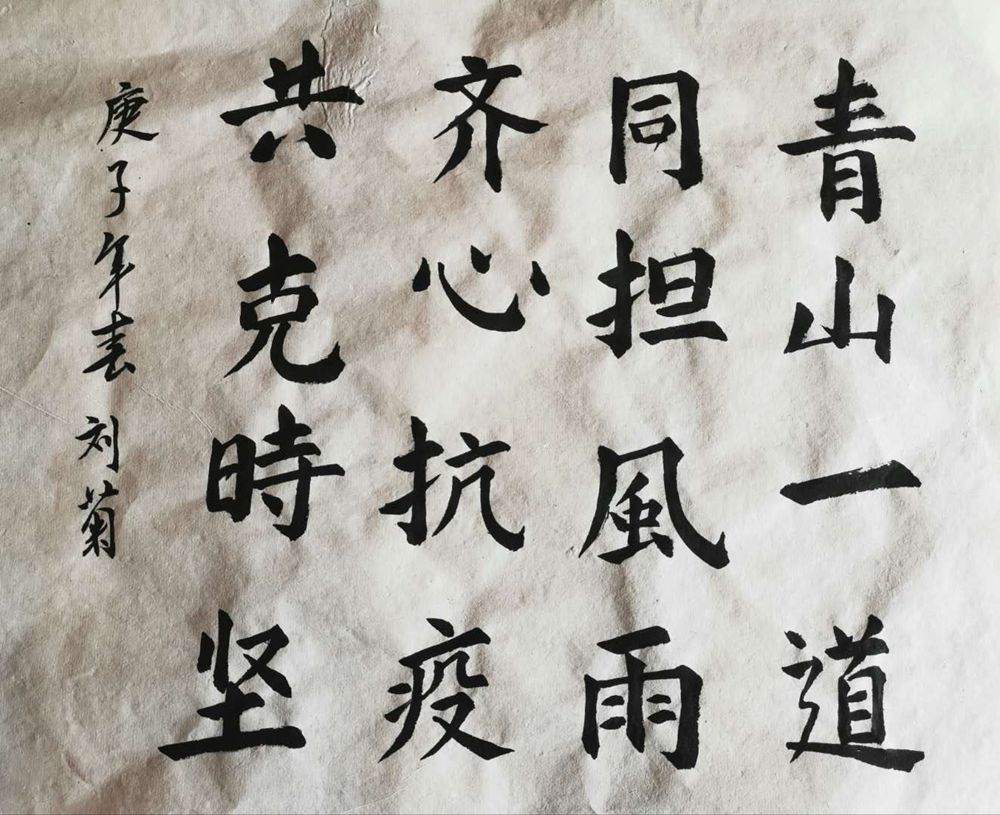 青山一道
同担風雨
齐心抗疫
共克時坚
庚子年春刘菊